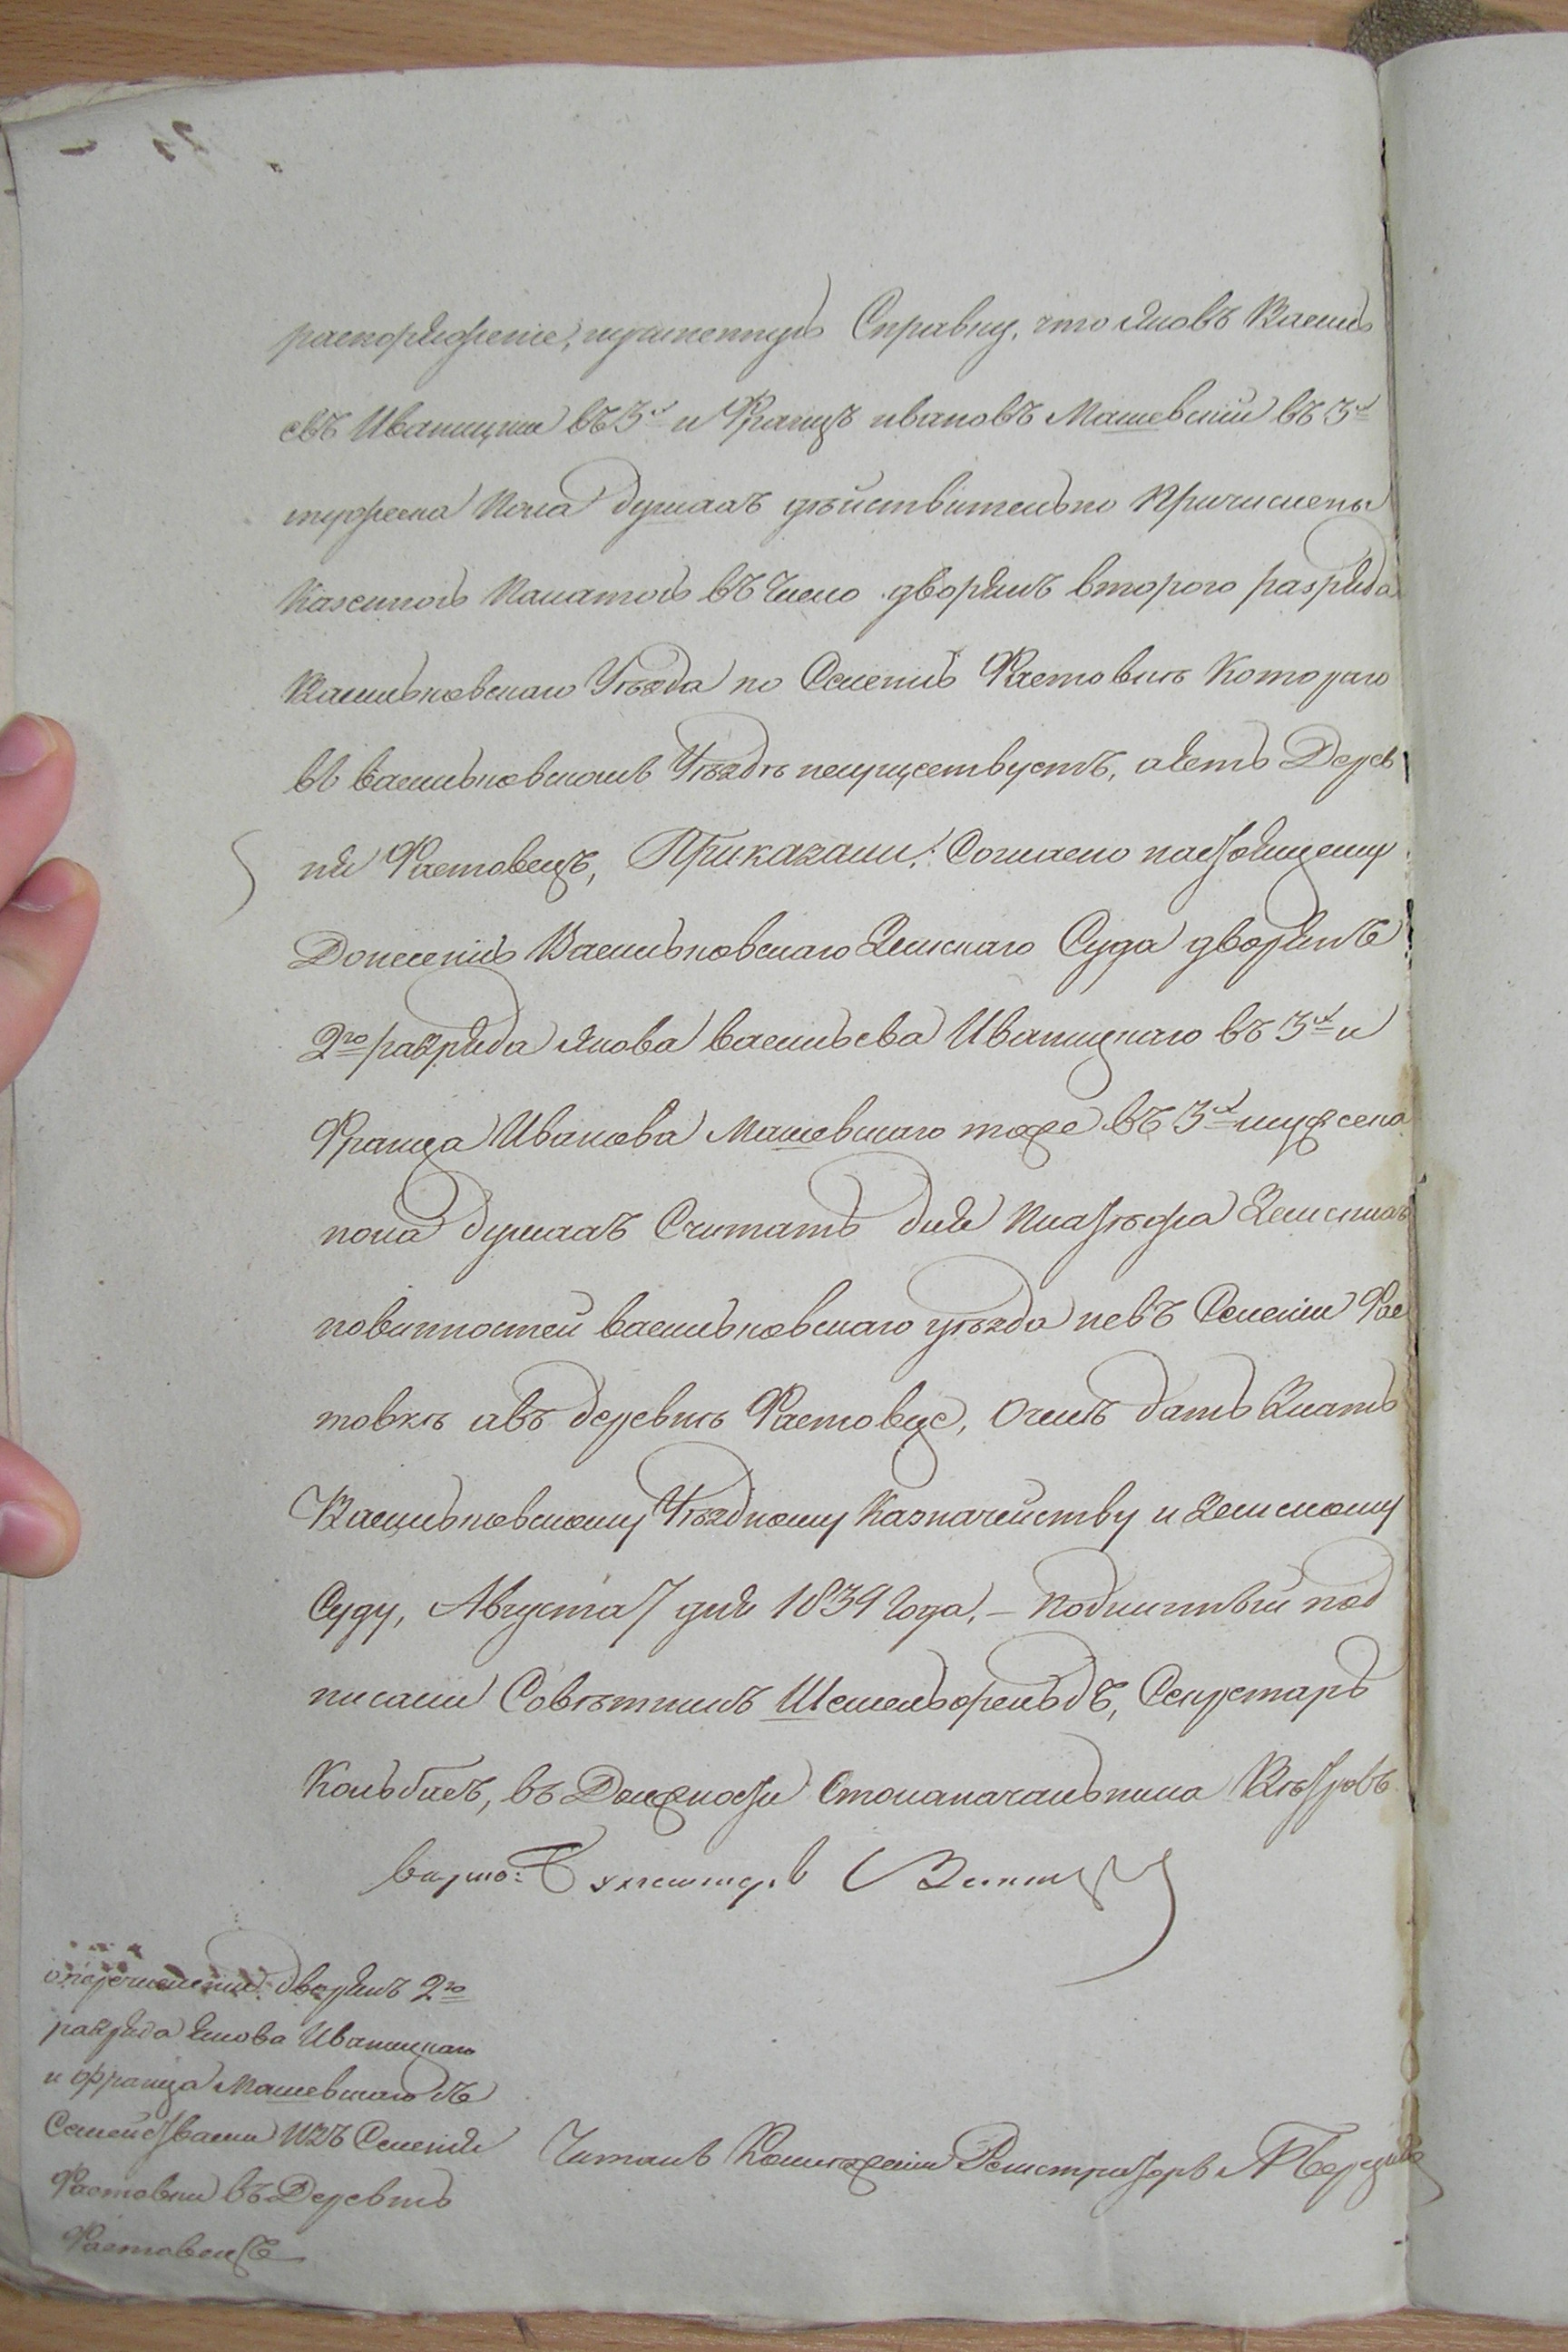 распоряженіе, учиненную Справку, что Яковъ Василь
евъ Иваницкій въ 3х и Францъ ивановъ Машевскій въ 3х
мужеска Пола душахъ дѣйствительно Причислены
Казенною Палатою въ Число дворянъ второго разряда
Васильковскаго Уѣзда по Селенію Фастовкѣ Котораго
въ васильковскомъ Уѣздѣ несуществуетъ, аесть Дерев
ня Фастовецъ, Приказали: Согласно настоящему
Донесенію Васильковскаго Земскаго Суда дворянъ
2го разряда Якова васильева Иваницкаго въ 3х и
Франца Иванова Машевскаго тоже въ 3х мужеска
пола душахъ Считать для Платежа Земскихъ
повинностей васильковскаго уѣзда невъ Селеніи Фас
товкѣ авъ деревнѣ Фастовцѣ, О чемъ дать Знать
Васильковскому Уѣздному Казначейству и Земскому
Суду, Августа 7 дня 1839 года, — Подлинный под
писали Совѣтникъ Шемельфенъдъ, Секретарь
въ Должности Столаначальника
вѣрно: Бухгалтеръ
о перечисленіи дворянъ 2го
разряда Якова Иваницкаго
и Франца Машевскаго съ
Семействами изъ Селенія
Фастовки въ Деревню
Фастовецъ
Читалъ Коллежскій Регистраторъ